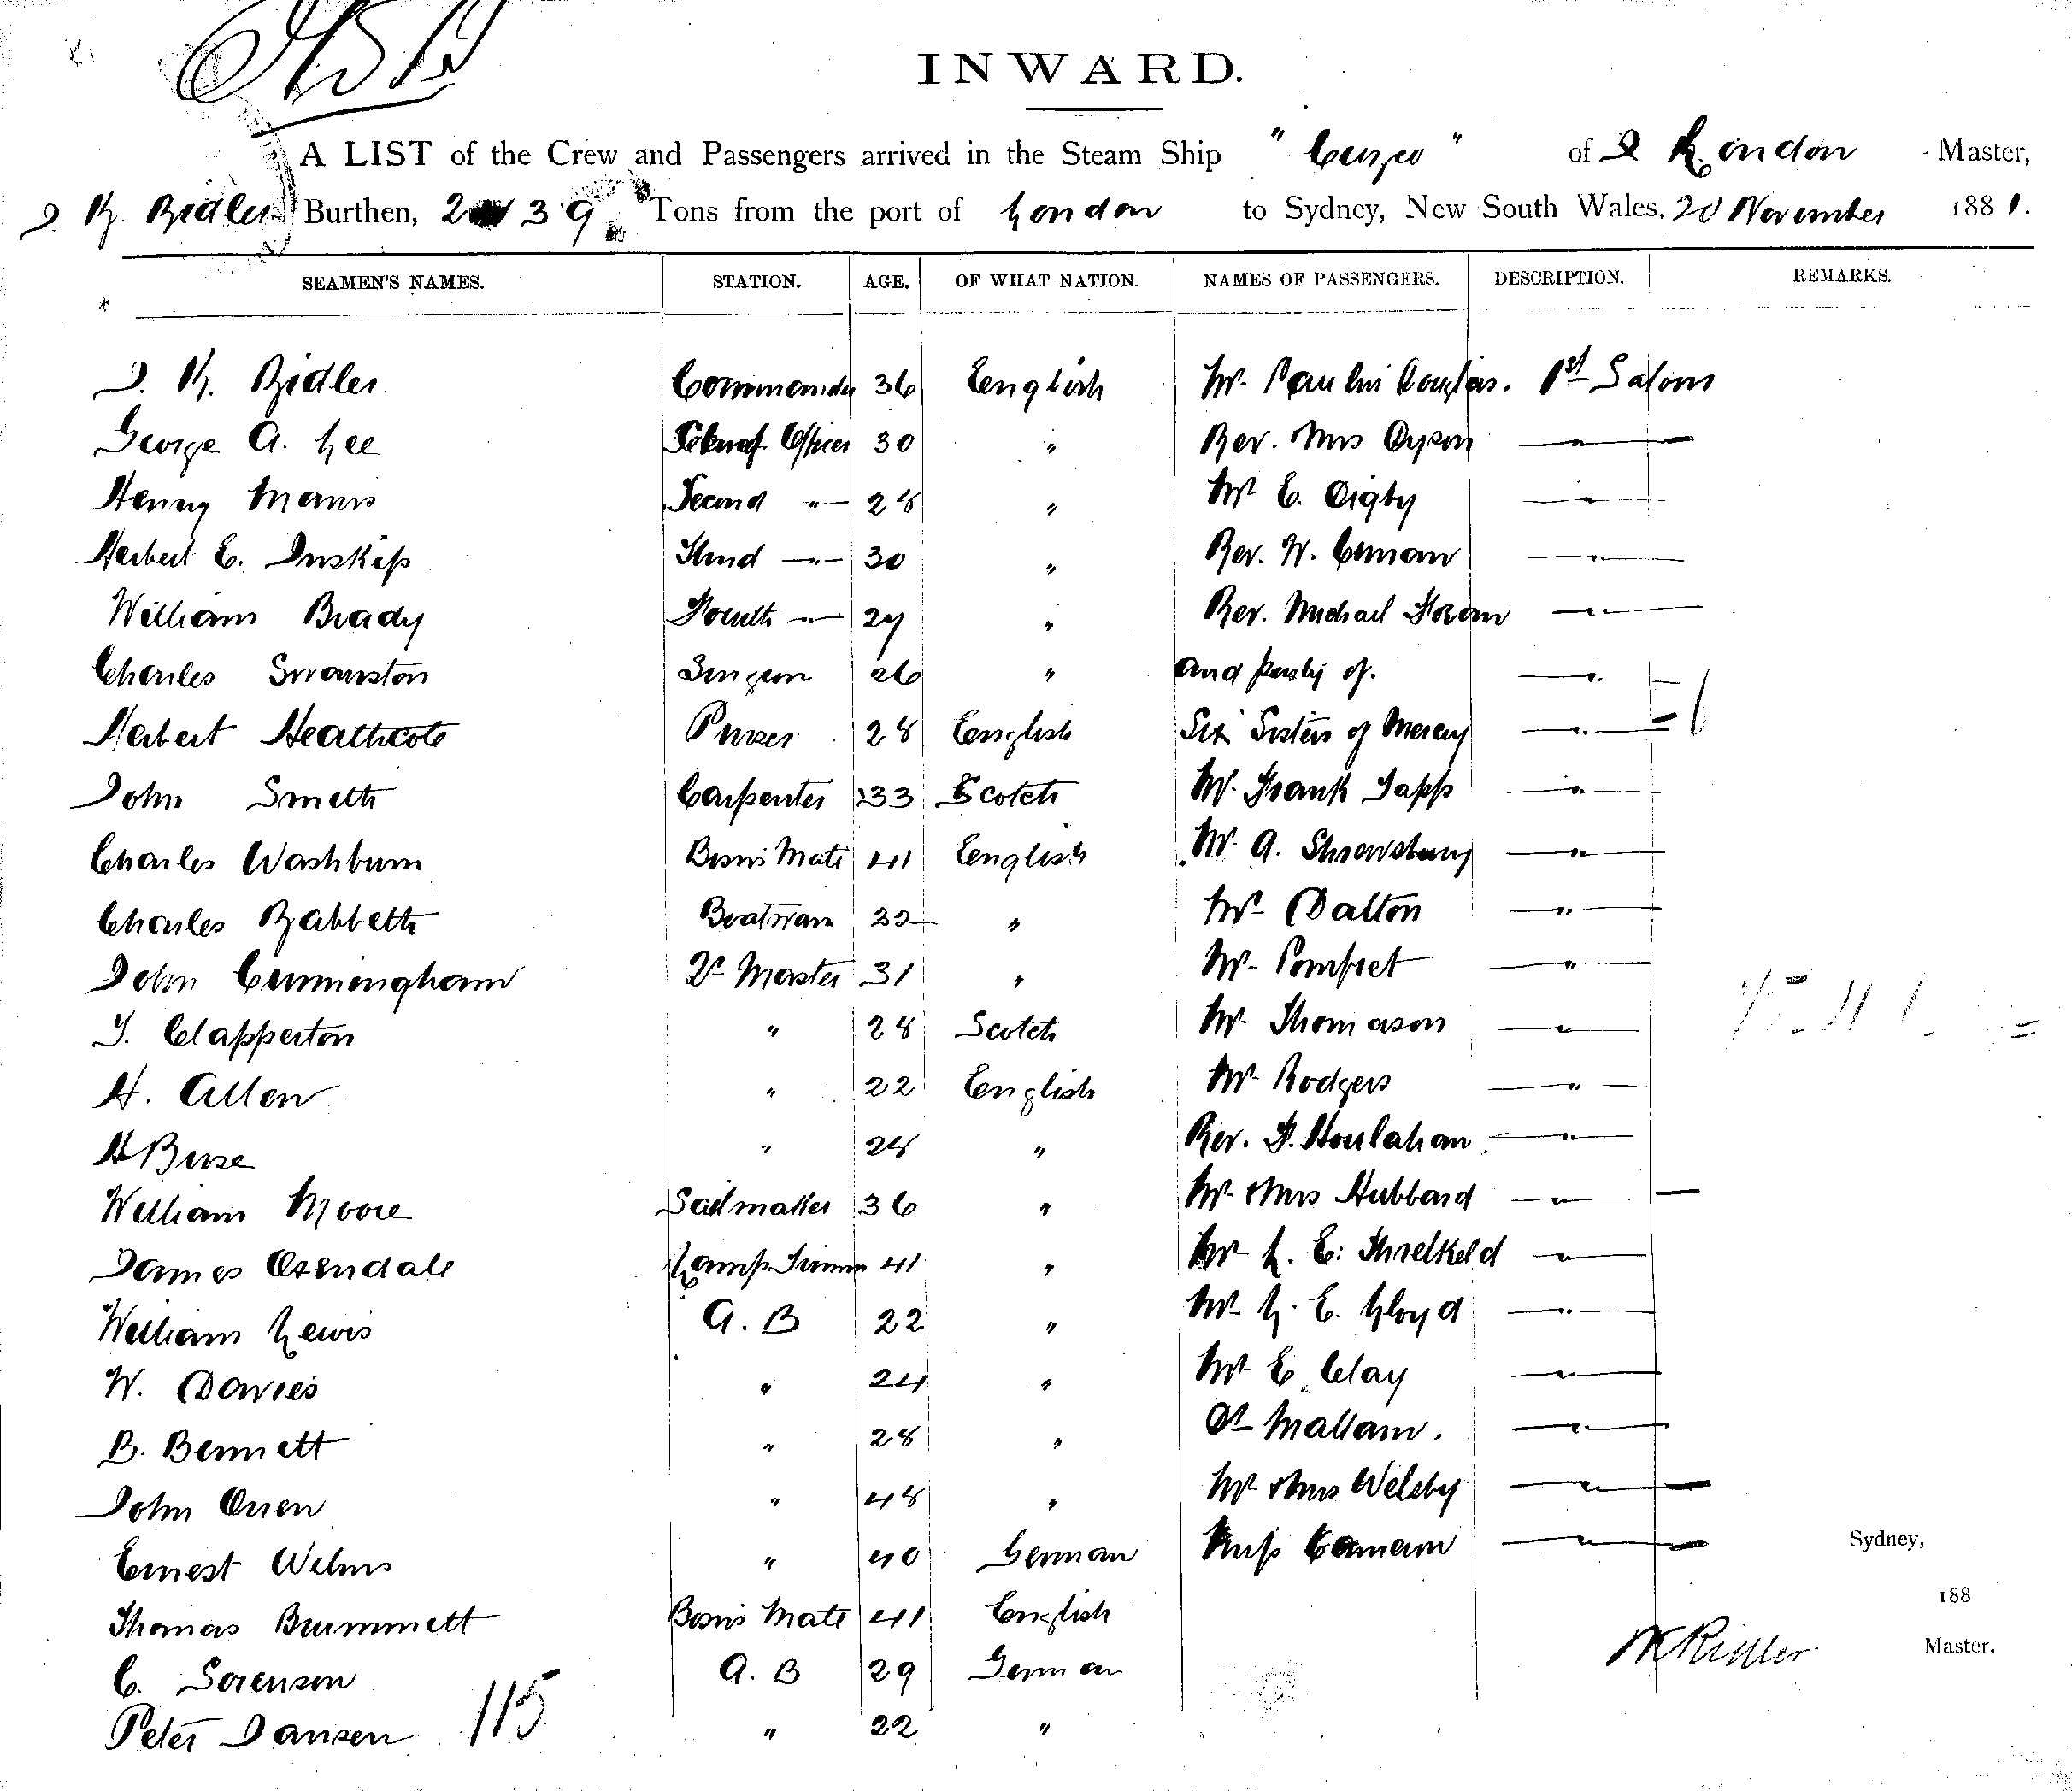 INWARD.
A LIST of the Crew and Passengers arrived in the Steam Ship "Cuzco" of London Master,
J K. Ridler Burthen, 2 39 Tons from the port of London to Sydney, New South Wales, 20 November 1881.
SEAMEN'S NAMES. STATION. AGE. OF WHAT NATION. NAMES OF PASSENGERS. DESCRIPTION. REMARKS.
J. K. Ridler Commander 36 English Mr. Douglas. 1st Saloon
George A. Lee Chief Officer 30 " Rev. Mrs Dyson "
Henry Manis Second " 28 " Mr E. Digby "
Herbert E. Inskip Third " 30 " Rev. W. "
William Brady Fourth " 27 " Rev. Michael Horan "
Charles Swanston Surgeon 26 " and party of. "
Herbert Heathcote Purser 28 English Six Sisters of Mercy "
John Smith Carpenter 33 Scotch Mr. Frank Tapp "
Charles Washburn Bosns Mate 41 English Mr. A. Shrewsbury "
Charles Rabbetts Boatman 32 " Mr Dalton "
John Cunningham Qr Master 31 " Mr Pomfret "
T. Clapperton " 28 Scotch Mr Thomason "
H. Allen " 22 English Mr Rodgers "
H Buse " 24 " Rev. F. Houlahan "
William Moore Sailmaker 36 " Mr & Mrs Hubbard "
James Oxendale Lamp Trimm 41 " Mr L. E. Threlkeld "
William Lewis A. B 22 " Mr L. E. Lloyd "
W. Davies " 24 " Mr E. Clay "
B. Bennett " 28 " Dr Mallam. "
John Owen " 48 " Mr & Mrs Welsby "
Ernest Wilms " 40 German Miss "
Sydney,
188
Thomas Brummett Bosns Mate 41 English
KRidler Master.
C. Sorenson A. B 29 German
Peter Jansen 115 " 22 "